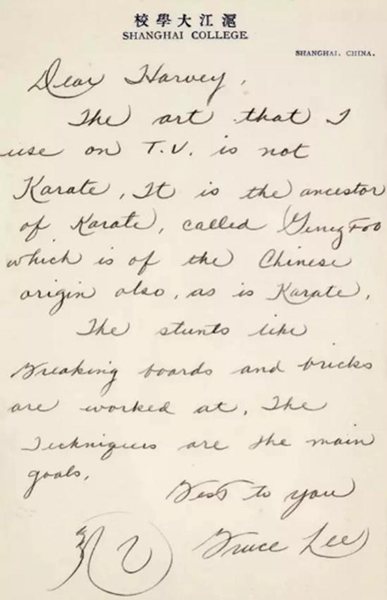 校學大江滬
SHANGHAI COLLEGE
SHANGHAI, CHINA.
Dear Harvey,
The art that I
use on T.V. is not
Karate, It is the ancestor
of Karate, called Gung Foo
which is of the Chinese
origin also, as is Karate.
The stunts like
Breaking boards and bricks
are worked at. The
Techniques are the main
goals.
Best to you
Bruce Lee